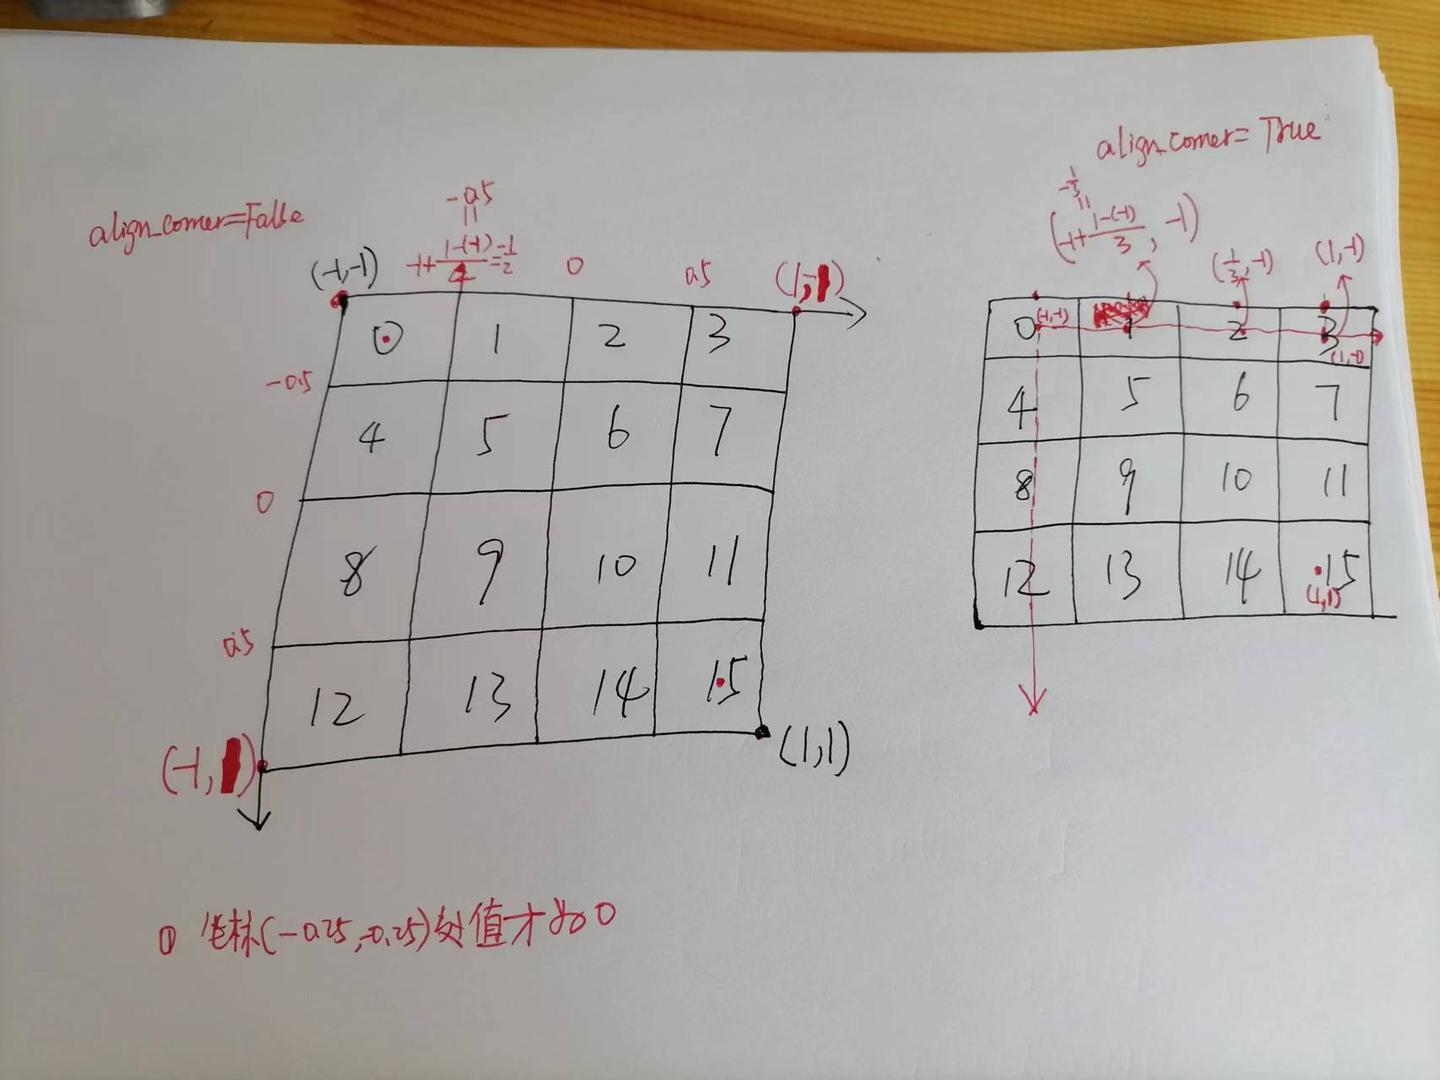 align_corner=True
align_corner=False
-0.5
=
-1+(1-(-1))/4=-1/2
(-1,-1)
0
0.5
(1,-1)
0 1 2 3
-0.5
4 5 6 7
0
8 9 10 11
0.5
12 13 14 15
(-1,1)
(1,1)
-1/3
=
(-1+(1-(-1))/3, -1)
(1/3,-1)
(1,-1)
0 (-1,-1) 1 2 3
(1,-1)
4 5 6 7
8 9 10 11
12 13 14 15
(1,1)
0 坐标(-0.25,-0.25)处值才为0